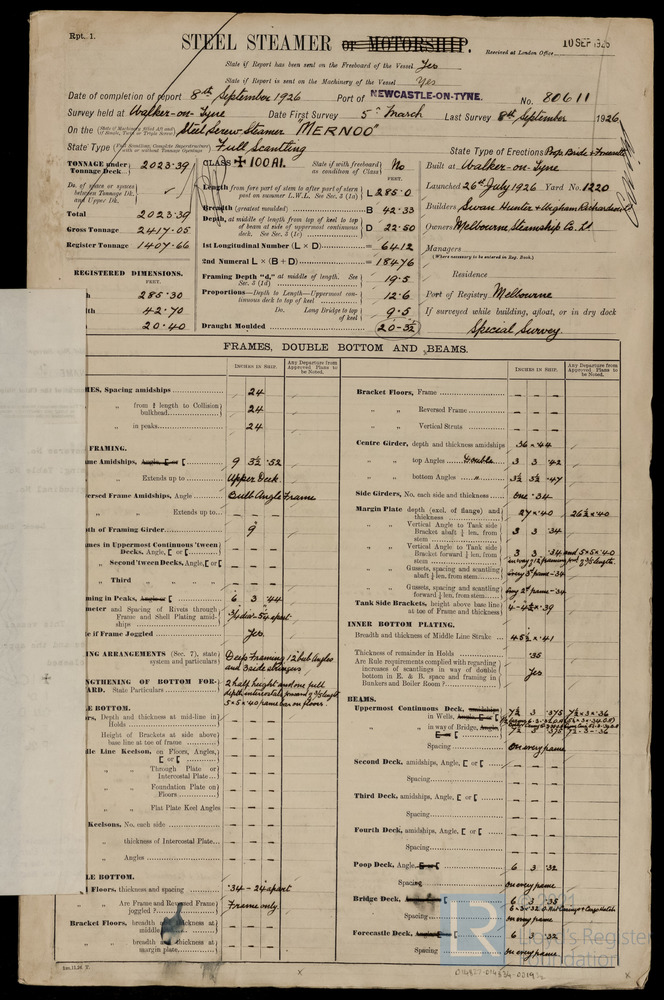 Rpt. 1.
STEEL STEAMER or MOTORSHIP.
Received at London Office 10 SEP 1926
State if Report has been sent on the Freeboard of the Vessel Yes
State if Report is sent on the Machinery of the Vessel Yes
Date of completion of report 8th September 1926 Port of NEWCASTLE-ON-TYNE. No. 80611
Survey held at Walker-on-Tyne Date First Survey 5th March Last Survey 8th September 1926
On the Steel Screw Steamer "MERNOO"
State Type Full Scantling State Type of Erections Poop Bridge & Fcastle
TONNAGE under Tonnage Deck 2023.39
Do. of space or spaces between Tonnage Dk. and Upper Dk.
Total 2023.39
Gross Tonnage 2417.05
Register Tonnage 1407.66
REGISTERED DIMENSIONS.
FEET.
285.30
42.70
20.40
CLASS ✠ 100A1. State if with freeboard as condition of Class No
Length from fore part of stem to after part of stern post on summer L.W.L. See Sec. 3 (1a) L 285.0
Breadth (greatest moulded) B 42.33
Depth, at middle of length from top of keel to top of beam at side of uppermost continuous deck. See Sec. 3 (1c) D 22.50
1st Longitudinal Number (L × D) = 6412
2nd Numeral L × (B + D) = 18476
Framing Depth "d," at middle of length. See Sec. 3 (1d) 19.5
Proportions—Depth to Length—Uppermost continuous deck to top of keel 12.6
Do. Long Bridge to top of keel 9.5
Draught Moulded 20-3½
Built at Walker-on-Tyne
Launched 26th July 1926 Yard No. 1220
Builders Swan Hunter & Wigham Richardson Ld
Owners Melbourne Steamship Co. Ld
Managers
(Where necessary to be entered in Reg. Book.)
Residence
Port of Registry Melbourne
If surveyed while building, afloat, or in dry dock
Special Survey.
FRAMES, DOUBLE BOTTOM AND BEAMS.
INCHES IN SHIP. Any Departure from Approved Plans to be Noted.
MES, Spacing amidships 24
" from ¾ length to Collision bulkhead 24
" in peaks 24
FRAMING.
me Amidships, Angle, [ or [ 9 3½ .52
Extends up to Upper Deck
ersed Frame Amidships, Angle Bulb Angle Frame
Extends up to
th of Framing Girder 9
mes in Uppermost Continuous 'tween Decks, Angle, [ or [
Second 'tween Decks, Angle, [ or [
Third " "
ming in Peaks, Angle or [ 6 3 .44
meter and Spacing of Rivets through Frame and Shell Plating amidships ¾ dia - 5¼ apart
e if Frame Joggled Yes.
NG ARRANGEMENTS (Sec. 7), state system and particulars Deep Framing 12" bulb angles and 3 side stringers
NGTHENING OF BOTTOM FORWARD. State Particulars
5 x 5 x .40 frame bar on floors.
LE BOTTOM.
rs, Depth and thickness at mid-line in Holds
Height of Brackets at side above base line at toe of frame
dle Line Keelson, on Floors, Angles, [ or [
" Through Plate or Intercostal Plate
" Foundation Plate on Floors
" Flat Plate Keel Angles
Keelsons, No. each side
thickness of Intercostal Plate
Angles
LE BOTTOM.
Floors, thickness and spacing .34 - 24 apart
Are Frame and Reversed Frame joggled? Frame only
Bracket Floors, breadth and thickness at middle
breadth and thickness at margin plate
Bracket Floors, Frame
" " Reversed Frame
" " Vertical Struts
Centre Girder, depth and thickness amidships 36 x .44
" top Angles Double 3 3 .42
" bottom Angles " 3½ 3½ .47
Side Girders, No. each side and thickness One .34
Margin Plate depth (excl. of flange) and thickness 27 x .40 26½ x .40
" Vertical Angle to Tank side Bracket abaft ¼ len. from stem 3 3 .34
" Vertical Angle to Tank side Bracket forward ¼ len. from stem 3 3 .34
" Gussets, spacing and scantling abaft ¼ len. from stem every 3rd frame - .34
" Gussets, spacing and scantling forward ¼ len. from stem
Tank Side Brackets, height above base line at toe of Frame and thickness
INNER BOTTOM PLATING.
Breadth and thickness of Middle Line Strake 45½ x .41
Thickness of remainder in Holds .35
Are Rule requirements complied with regarding increases of scantlings in way of double bottom in E. & B. space and framing in Bunkers and Boiler Room? Yes
BEAMS.
Uppermost Continuous Deck, amidships 7½ 3 .375 7½ x 3 x .36
" in Wells, Angle, [ or [
" in way of Bridge, Angle, [ or [ 7½ 3 .375 7½ - 3 - .36
Spacing On every frame
Second Deck, amidships, Angle, [ or [
Spacing
Third Deck, amidships, Angle, [ or [
Spacing
Fourth Deck, amidships, Angle, [ or [
Spacing
Poop Deck, Angle, [ or [ 6 3 .32
Spacing on every frame
Bridge Deck, Angle, [ or [ 6 3 .35
Spacing on every frame
Forecastle Deck, Angle, [ or [ 6 3 .32
Spacing on every frame
Lloyd's Register
Foundation